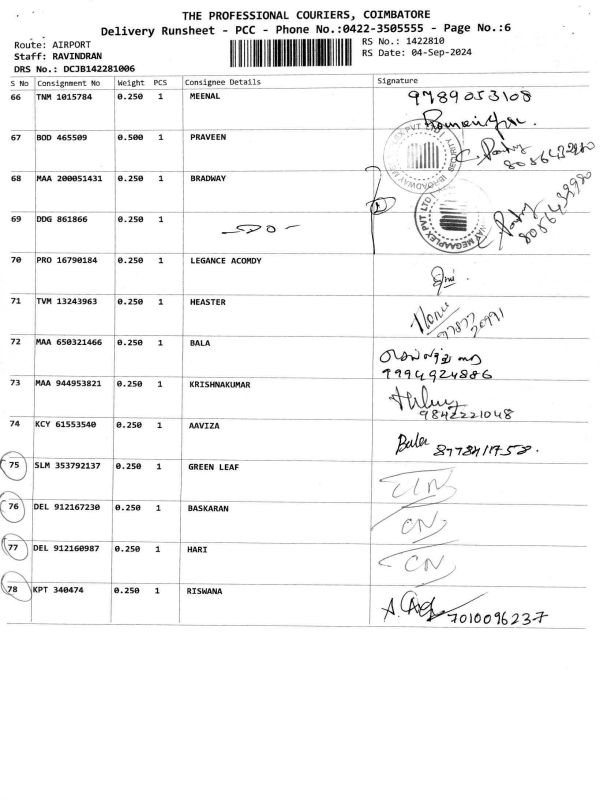 THE PROFESSIONAL COURIERS, COIMBATORE
Delivery Runsheet - PCC - Phone No.:0422-3505555 - Page No.:6
Route: AIRPORT
RS No.: 1422810
Staff: RAVINDRAN
RS Date: 04-Sep-2024
DRS No.: DCJB142281006
S No Consignment No Weight PCS Consignee Details Signature
66 TNM 1015784 0.250 1 MEENAL 9789053108
67 BOD 465509 0.500 1 PRAVEEN 8056432980
68 MAA 200051431 0.250 1 BRADWAY
69 DDG 861866 0.250 1 -DO- 8056432980
70 PRO 16790184 0.250 1 LEGANCE ACOMDY
71 TVM 13243963 0.250 1 HEASTER
72 MAA 650321466 0.250 1 BALA
9994924886
73 MAA 944953821 0.250 1 KRISHNAKUMAR
9842221048
74 KCY 61553540 0.250 1 AAVIZA
Bala
75 SLM 353792137 0.250 1 GREEN LEAF
76 DEL 912167230 0.250 1 BASKARAN CN
77 DEL 912160987 0.250 1 HARI CN
78 KPT 340474 0.250 1 RISWANA
7010096237